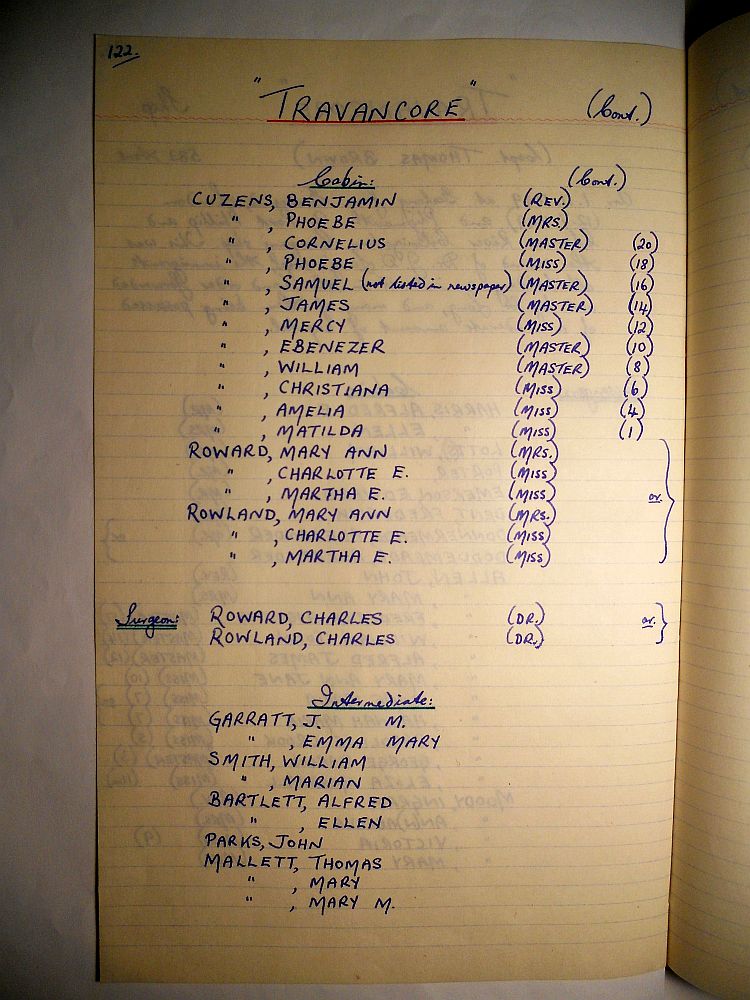 122.
"TRAVANCORE" (Cont.)
Cabin: (Cont.)
CUZENS, BENJAMIN (REV.)
" , PHOEBE (MRS.)
" , CORNELIUS (MASTER) (20)
" , PHOEBE (MISS) (18)
" , SAMUEL (not listed in newspaper) (MASTER) (16)
" , JAMES (MASTER) (14)
" , MERCY (MISS) (12)
" , EBENEZER (MASTER) (10)
" , WILLIAM (MASTER) (8)
" , CHRISTIANA (MISS) (6)
" , AMELIA (MISS) (4)
" , MATILDA (MISS) (1)
ROWARD, MARY ANN (MRS.)
" , CHARLOTTE E. (MISS)
" , MARTHA E. (MISS) or.
ROWLAND, MARY ANN (MRS.)
" , CHARLOTTE E. (MISS)
" , MARTHA E. (MISS)
Surgeon: ROWARD, CHARLES (DR.) or.
ROWLAND, CHARLES (DR.)
Intermediate:
GARRATT, J. M.
" , EMMA MARY
SMITH, WILLIAM
" , MARIAN
BARTLETT, ALFRED
" , ELLEN
PARKS, JOHN
MALLETT, THOMAS
" , MARY
" , MARY M.